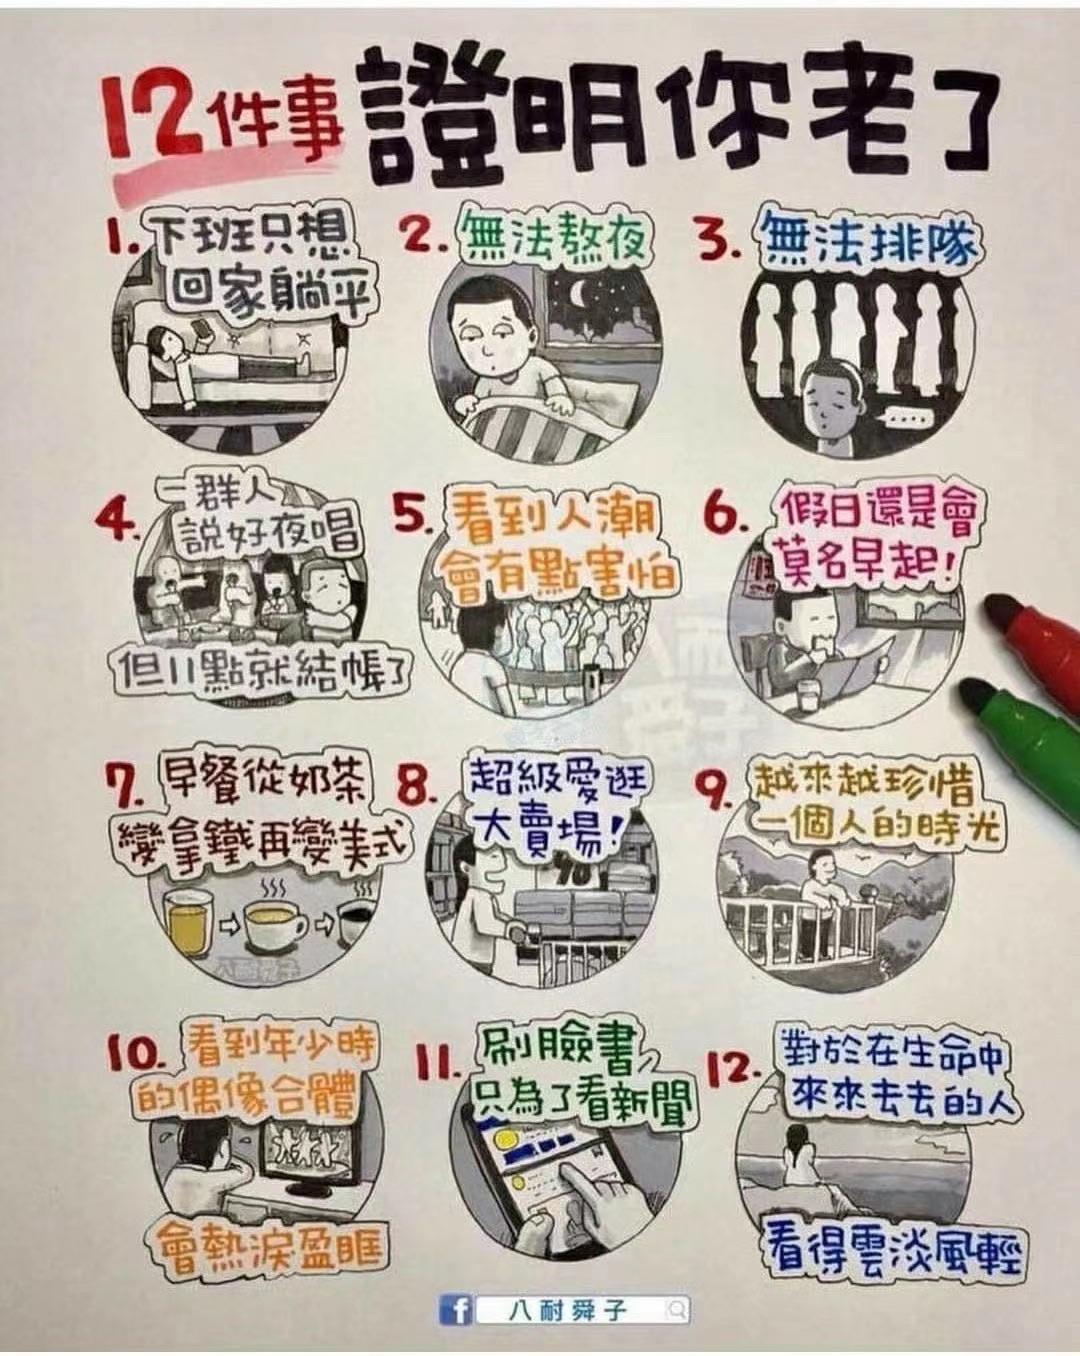 12件事 證明你老了
1. 下班只想
回家躺平
2. 無法熬夜
3. 無法排隊
4. 一群人
說好夜唱
但11點就結帳了
5. 看到人潮
會有點害怕
6. 假日還是會
莫名早起!
7. 早餐從奶茶
變拿鐵再變美式
8. 超級愛逛
大賣場!
9. 越來越珍惜
一個人的時光
10. 看到年少時
的偶像合體
會熱淚盈眶
11. 刷臉書,
只為了看新聞
12. 對於在生命中
來來去去的人
看得雲淡風輕
f 八耐舜子